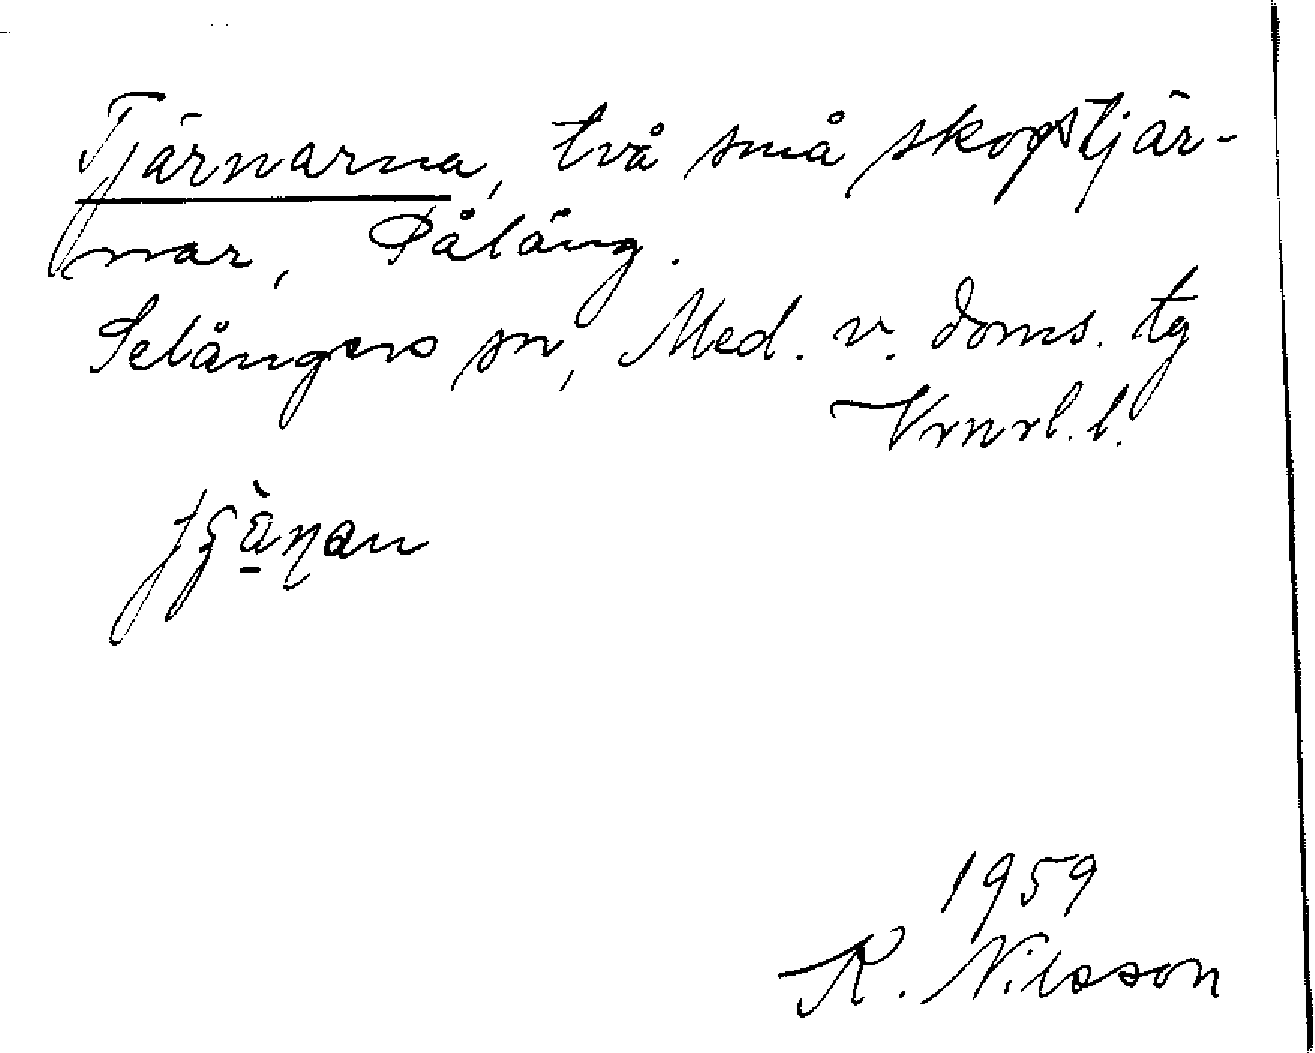 Tjärnarna, två små skogstjär-
nar, Påläng.
Selångers sn, Med. v. doms. tg
Vrnrl. l.
1959
R. Nilsson